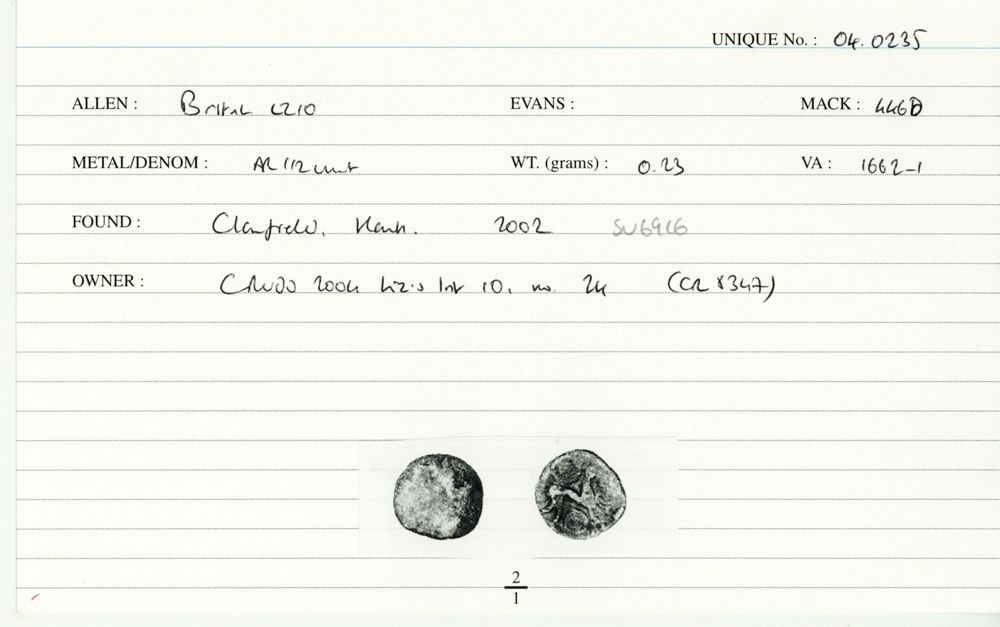 UNIQUE No. : 04.0235
ALLEN : British LZ10 EVANS : MACK : 446D
METAL/DENOM : AR 1/2 unit WT. (grams) : 0.23 VA : 1662-1
FOUND : Clanfield, Hants. 2002 SU6916
OWNER : 2004 List 10, no. 24 (CR 8347)
2
1